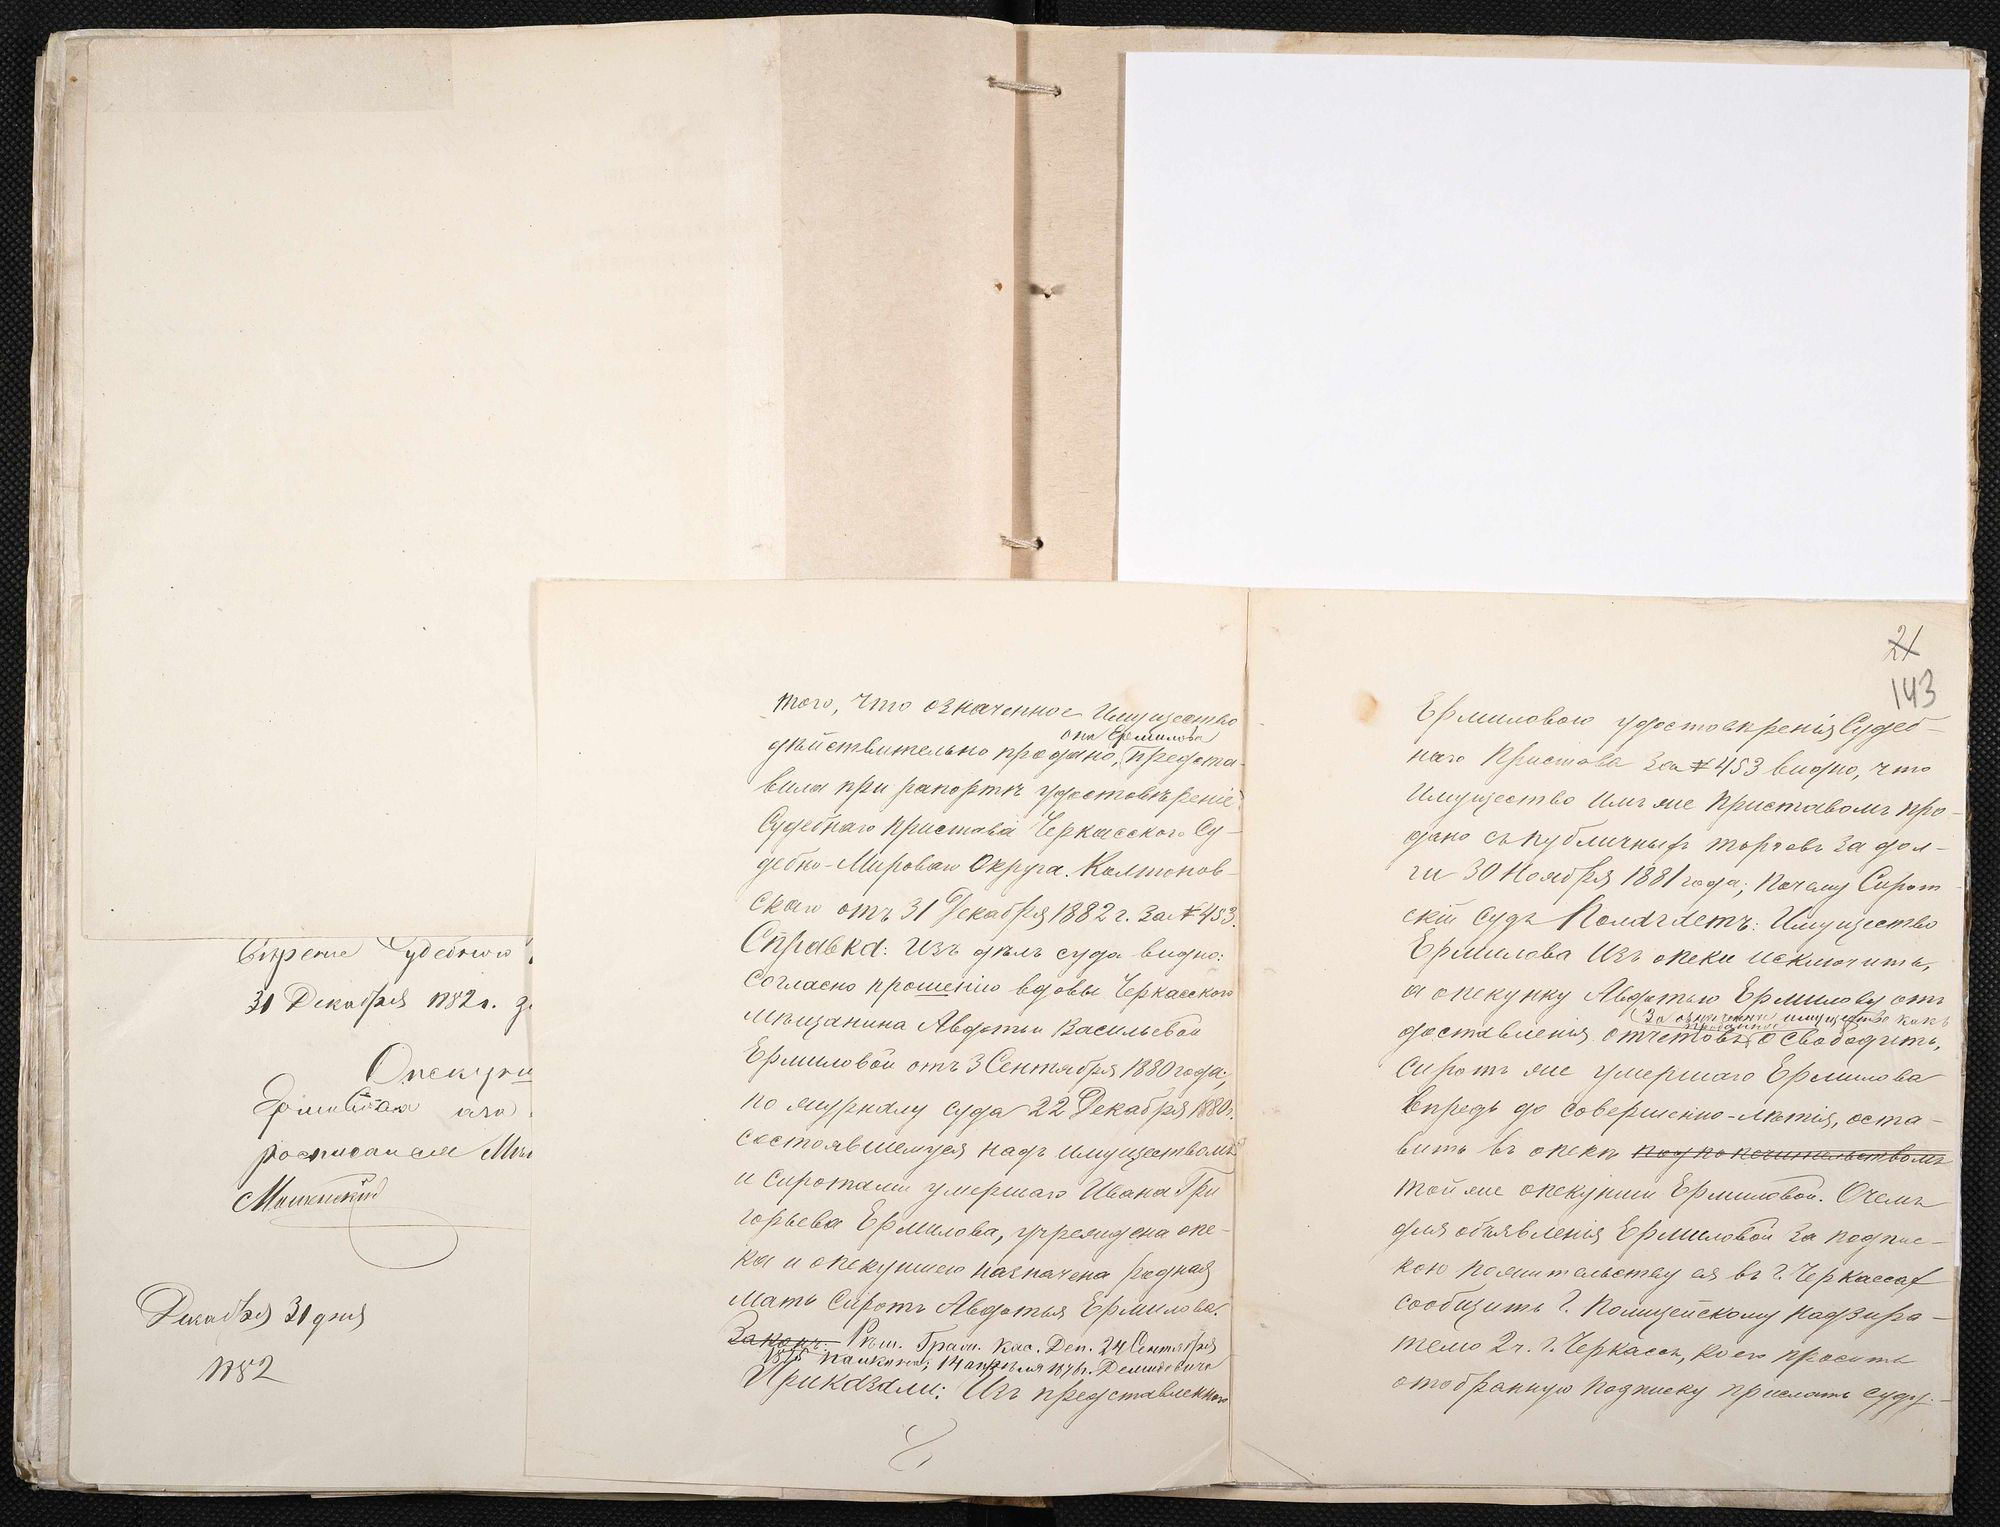 вѣрение Судебного
31 Декабря 1882 г.
Опекун
росписался
Декабря 31 дня
1882
того, что означенное Имущество
она Ермилова
дѣйствительно продано, предста-
вила при рапортѣ удостовѣреніе
Судебнаго Пристава Черкасскаго Су-
дебно-Мироваго Округа Колтонов-
скаго отъ 31 Декабря 1882 г. за № 453.
Справка: Изъ дѣлъ суда видно:
согласно прошенію вдовы Черкасскаго
мѣщанина Авдотьи Васильевой
Ермиловой отъ 3 Сентября 1880 года,
по журналу суда 22 Декабря 1880 г.
состоявшемуся надъ имуществомъ
и сиротами умершаго Ивана Гри
горьева Ермилова, учреждена опе-
ка и опекуншею назначена родная
мать Сиротъ Авдотья Ермилова.
Законъ: Рѣш. Граж. Кас. Деп. 24 Сентября
1875 14 апрѣля 1876 г. Демидовича
Приказали: Изъ представленнаго
21
143
Ермиловою удостовѣренія Судеб-
наго Пристава за № 453 видно, что
Имущество имъ же Приставомъ про-
дано съ публичныхъ торговъ за дол-
ги 30 Ноября 1881 года; Почему Сирот
скій Судъ Полагаетъ: Имущество
Ермилова Изъ опеки исключить,
а опекунку Авдотью Ермилову отъ
за означенное имущество какъ
проданное
доставленія отчетовъ освободить,
Сиротъ же умершаго Ермилова
впредь до совершенно-лѣтія, оста-
вить въ опекѣ подпопечительствомъ
той же опекунши Ермиловой. О чемъ
для объявленія Ермиловой за подпис-
кою жительству ея въ г. Черкассах
сообщить Г. Полицейскому Надзира-
телю 2 ч. г. Черкассъ, коего просить
отобранную подписку прислать суду.